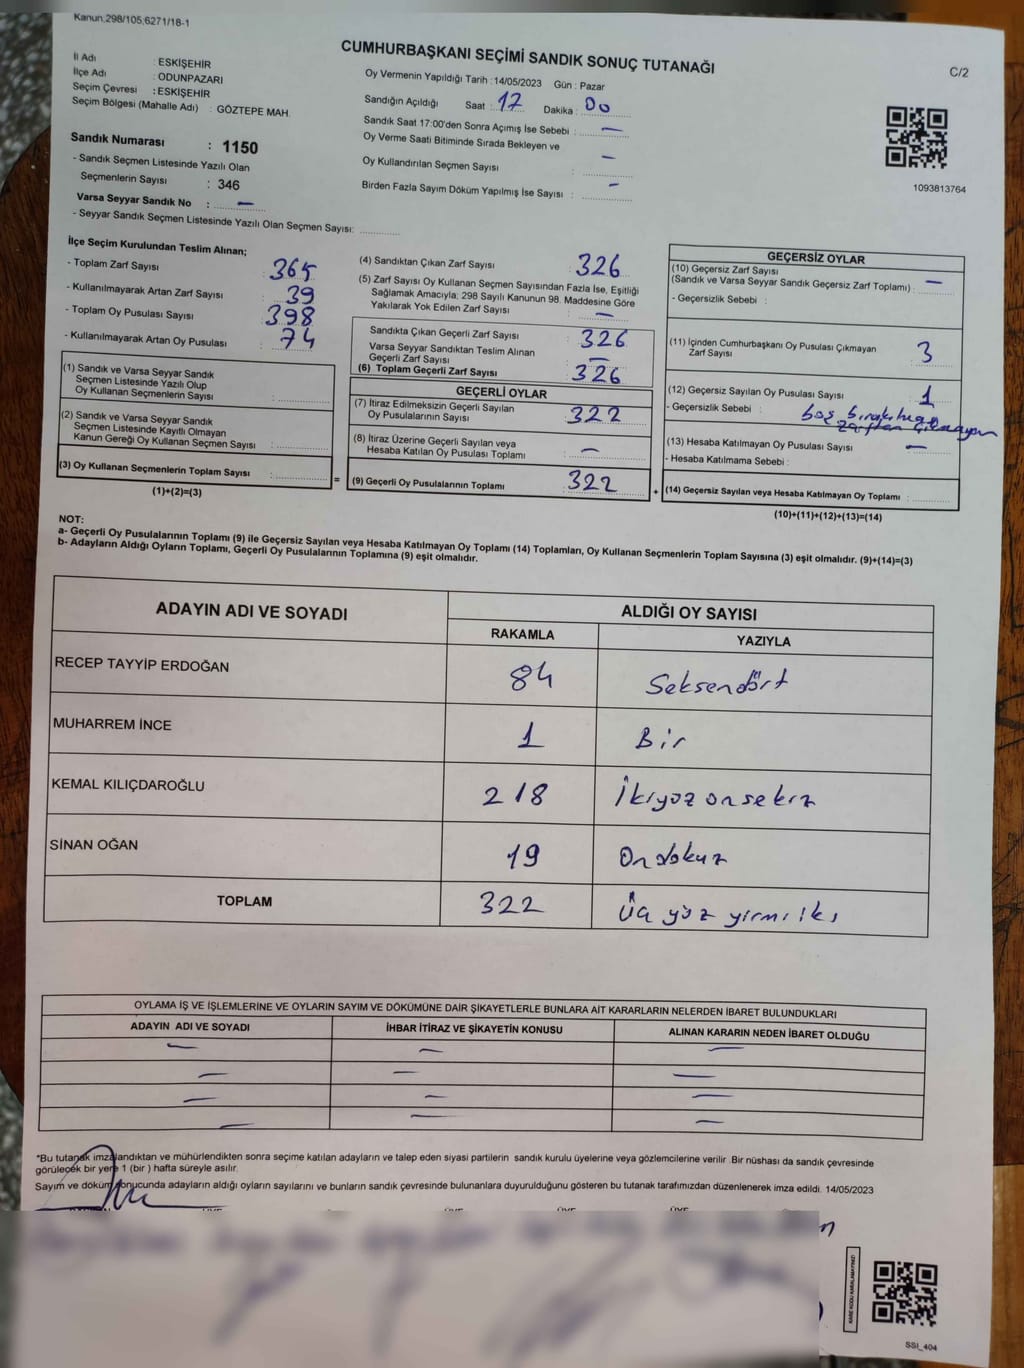 Kanun;298/105;6271/18-1
CUMHURBAŞKANI SEÇİMİ SANDIK SONUÇ TUTANAĞI
C/2
İl Adı : ESKİŞEHİR
İlçe Adı : ODUNPAZARI
Seçim Çevresi : ESKİŞEHİR
Seçim Bölgesi (Mahalle Adı) : GÖZTEPE MAH.
Oy Vermenin Yapıldığı Tarih : 14/05/2023 Gün : Pazar
Sandığın Açıldığı Saat : 17 Dakika : 00
Sandık Saat 17:00'den Sonra Açımış İse Sebebi : —
Oy Verme Saati Bitiminde Sırada Bekleyen ve
Oy Kullandırılan Seçmen Sayısı : —
Birden Fazla Sayım Döküm Yapılmış İse Sayısı : —
1093813764
Sandık Numarası : 1150
- Sandık Seçmen Listesinde Yazılı Olan
Seçmenlerin Sayısı : 346
Varsa Seyyar Sandık No : —
- Seyyar Sandık Seçmen Listesinde Yazılı Olan Seçmen Sayısı:
İlçe Seçim Kurulundan Teslim Alınan;
- Toplam Zarf Sayısı 365
- Kullanılmayarak Artan Zarf Sayısı : 39
- Toplam Oy Pusulası Sayısı : 398
- Kullanılmayarak Artan Oy Pusulası : 74
(1) Sandık ve Varsa Seyyar Sandık
Seçmen Listesinde Yazılı Olup
Oy Kullanan Seçmenlerin Sayısı :
(2) Sandık ve Varsa Seyyar Sandık
Seçmen Listesinde Kayıtlı Olmayan
Kanun Gereği Oy Kullanan Seçmen Sayısı :
(3) Oy Kullanan Seçmenlerin Toplam Sayısı :
(1)+(2)=(3)
(4) Sandıktan Çıkan Zarf Sayısı : 326
(5) Zarf Sayısı Oy Kullanan Seçmen Sayısından Fazla İse, Eşitliği
Sağlamak Amacıyla; 298 Sayılı Kanunun 98. Maddesine Göre
Yakılarak Yok Edilen Zarf Sayısı : —
Sandıkta Çıkan Geçerli Zarf Sayısı : 326
Varsa Seyyar Sandıktan Teslim Alınan
Geçerli Zarf Sayısı : —
(6) Toplam Geçerli Zarf Sayısı : 326
GEÇERLİ OYLAR
(7) İtiraz Edilmeksizin Geçerli Sayılan
Oy Pusulalarının Sayısı : 322
(8) İtiraz Üzerine Geçerli Sayılan veya
Hesaba Katılan Oy Pusulası Toplamı : —
= (9) Geçerli Oy Pusulalarının Toplamı : 322
GEÇERSİZ OYLAR
(10) Geçersiz Zarf Sayısı
(Sandık ve Varsa Seyyar Sandık Geçersiz Zarf Toplamı) : —
- Geçersizlik Sebebi :
(11) İçinden Cumhurbaşkanı Oy Pusulası Çıkmayan
Zarf Sayısı 3
(12) Geçersiz Sayılan Oy Pusulası Sayısı : 1
- Geçersizlik Sebebi : boş
zarftan çıkmayan
(13) Hesaba Katılmayan Oy Pusulası Sayısı : —
- Hesaba Katılmama Sebebi :
+ (14) Geçersiz Sayılan veya Hesaba Katılmayan Oy Toplamı :
(10)+(11)+(12)+(13)=(14)
NOT:
a- Geçerli Oy Pusulalarının Toplamı (9) ile Geçersiz Sayılan veya Hesaba Katılmayan Oy Toplamı (14) Toplamları, Oy Kullanan Seçmenlerin Toplam Sayısına (3) eşit olmalıdır. (9)+(14)=(3)
b- Adayların Aldığı Oyların Toplamı, Geçerli Oy Pusulalarının Toplamına (9) eşit olmalıdır.
ADAYIN ADI VE SOYADI ALDIĞI OY SAYISI
RAKAMLA YAZIYLA
RECEP TAYYİP ERDOĞAN 84 Seksendört
MUHARREM İNCE 1 Bir
KEMAL KILIÇDAROĞLU 218 İkiyüz onsekiz
SİNAN OĞAN 19 Ondokuz
TOPLAM 322 Üç yüz yirmi iki
OYLAMA İŞ VE İŞLEMLERİNE VE OYLARIN SAYIM VE DÖKÜMÜNE DAİR ŞİKAYETLERLE BUNLARA AİT KARARLARIN NELERDEN İBARET BULUNDUKLARI
ADAYIN ADI VE SOYADI İHBAR İTİRAZ VE ŞİKAYETİN KONUSU ALINAN KARARIN NEDEN İBARET OLDUĞU
— — —
— — —
— — —
— — —
*Bu tutanak imzalandıktan ve mühürlendikten sonra seçime katılan adayların ve talep eden siyasi partilerin sandık kurulu üyelerine veya gözlemcilerine verilir .Bir nüshası da sandık çevresinde
görülecek bir yere 1 (bir ) hafta süreyle asılır.
Sayım ve döküm sonucunda adayların aldığı oyların sayılarını ve bunların sandık çevresinde bulunanlara duyurulduğunu gösteren bu tutanak tarafımızdan düzenlenerek imza edildi. 14/05/2023
KARE KODU KARALAMAYINIZ!
SSI_404